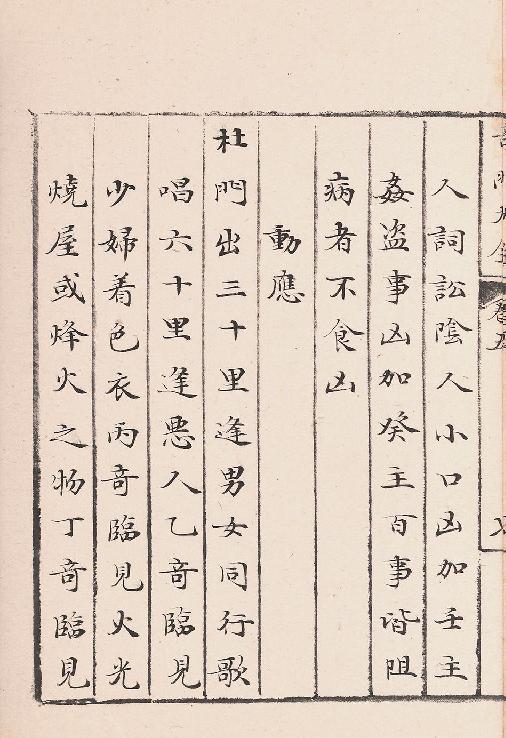 人詞訟陰人小口凶加壬主
姦盗事凶加癸主百事皆阻
病者不食凶
動應
杜門出三十里逢男女同行歌
唱六十里逢惡人乙奇臨見
少婦着色衣丙奇臨見火光
燒屋或烽火之物丁奇臨見